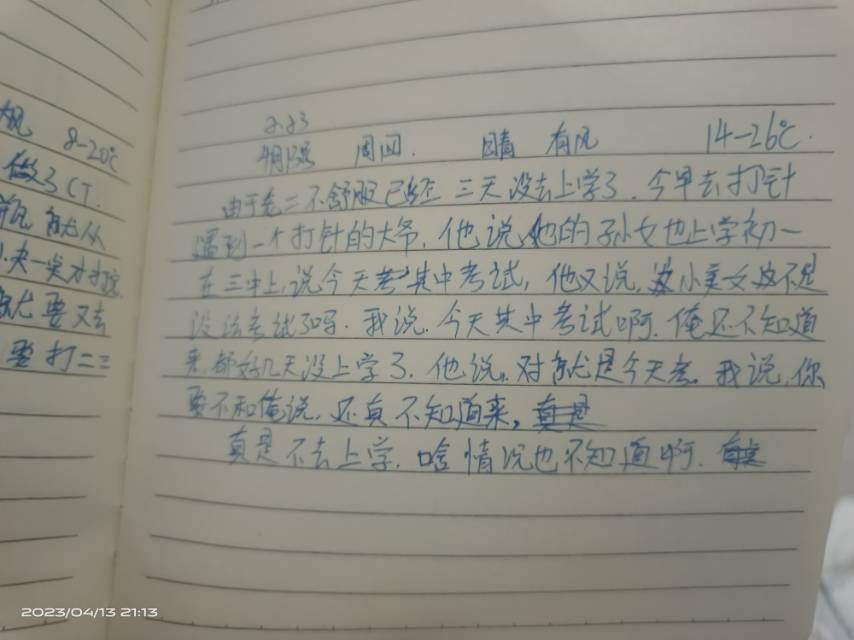 风 8-20℃
做了CT.
就从
就要又去
要打二三
2.23
4月13 周四. 晴 有风 14-26℃.
由于老二不舒服已经三天没去上学了.今早去打针
遇到一个打针的大爷,他说,她的孙女也上学初一
在三中上,说今天考其中考试,他又说,这小美女这不是
没法考试了吗.我说.今天其中考试啊.俺还不知道
来,都好几天没上学了.他说.对就是今天考.我说,你
要不和俺说.还真不知道来,真是
真是不去上学.啥情况也不知道啊.
2023/04/13 21:13